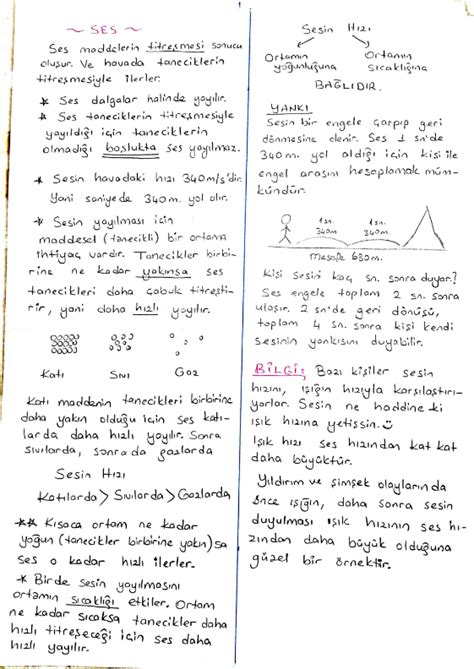 ~ SES ~
Ses maddelerin titreşmesi sonucu
oluşur. Ve havada taneciklerin
titreşmesiyle ilerler.
* Ses dalgalar halinde yayılır.
* Ses taneciklerin titreşmesiyle
yayıldığı için taneciklerin
olmadığı boşlukta ses yayılmaz.
* Sesin havadaki hızı 340m/s'dir.
Yani saniyede 340m. yol alır.
* Sesin yayılması için
maddesel (tanecikli) bir ortama
ihtiyaç vardır. Tanecikler birbi-
rine ne kadar yakınsa ses
tanecikleri daha çabuk titreşti-
rir, yani daha hızlı yayılır.
Katı Sıvı Gaz
Katı maddenin tanecikleri birbirine
daha yakın olduğu için ses katı-
larda daha hızlı yayılır. Sonra
sıvılarda, sonra da gazlarda
Sesin Hızı
Katılarda > Sıvılarda > Gazlarda
** Kısaca ortam ne kadar
yoğun (tanecikler birbirine yakın)sa
ses o kadar hızlı ilerler.
* Birde sesin yayılmasını
ortamın sıcaklığı etkiler. Ortam
ne kadar sıcaksa tanecikler daha
hızlı titreşeceği için ses daha
hızlı yayılır.
Sesin Hızı
Ortamın Ortamın
yoğunluğuna Sıcaklığına
BAĞLIDIR.
YANKI
Sesin bir engele çarpıp geri
dönmesine denir. Ses 1 sn'de
340m. yol aldığı için kişi ile
engel arasını hesaplamak müm-
kündür.
1sn. 1sn.
340m 340m.
Mesafe 680m.
Kişi sesini kaç sn. sonra duyar?
Ses engele toplam 2 sn. sonra
ulaşır. 2 sn'de geri dönüşü,
toplam 4 sn. sonra kişi kendi
sesinin yankısını duyabilir.
BİLGİ: Bazı kişiler sesin
hızını, ışığın hızıyla karşılaştırı-
yorlar. Sesin ne haddine ki
ışık hızına yetişsin.
Işık hızı ses hızından kat kat
daha büyüktür.
Yıldırım ve şimşek olaylarında
önce ışığın, daha sonra sesin
duyulması ışık hızının ses hı-
zından daha büyük olduğuna
güzel bir örnektir.